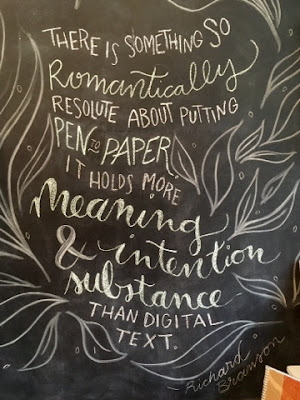 THERE IS SOMETHING SO
Romantically
RESOLUTE ABOUT PUTTING
PEN TO PAPER!
IT HOLDS MORE
meaning
& intention
substance
THAN DIGITAL
TEXT.
Richard
Branson